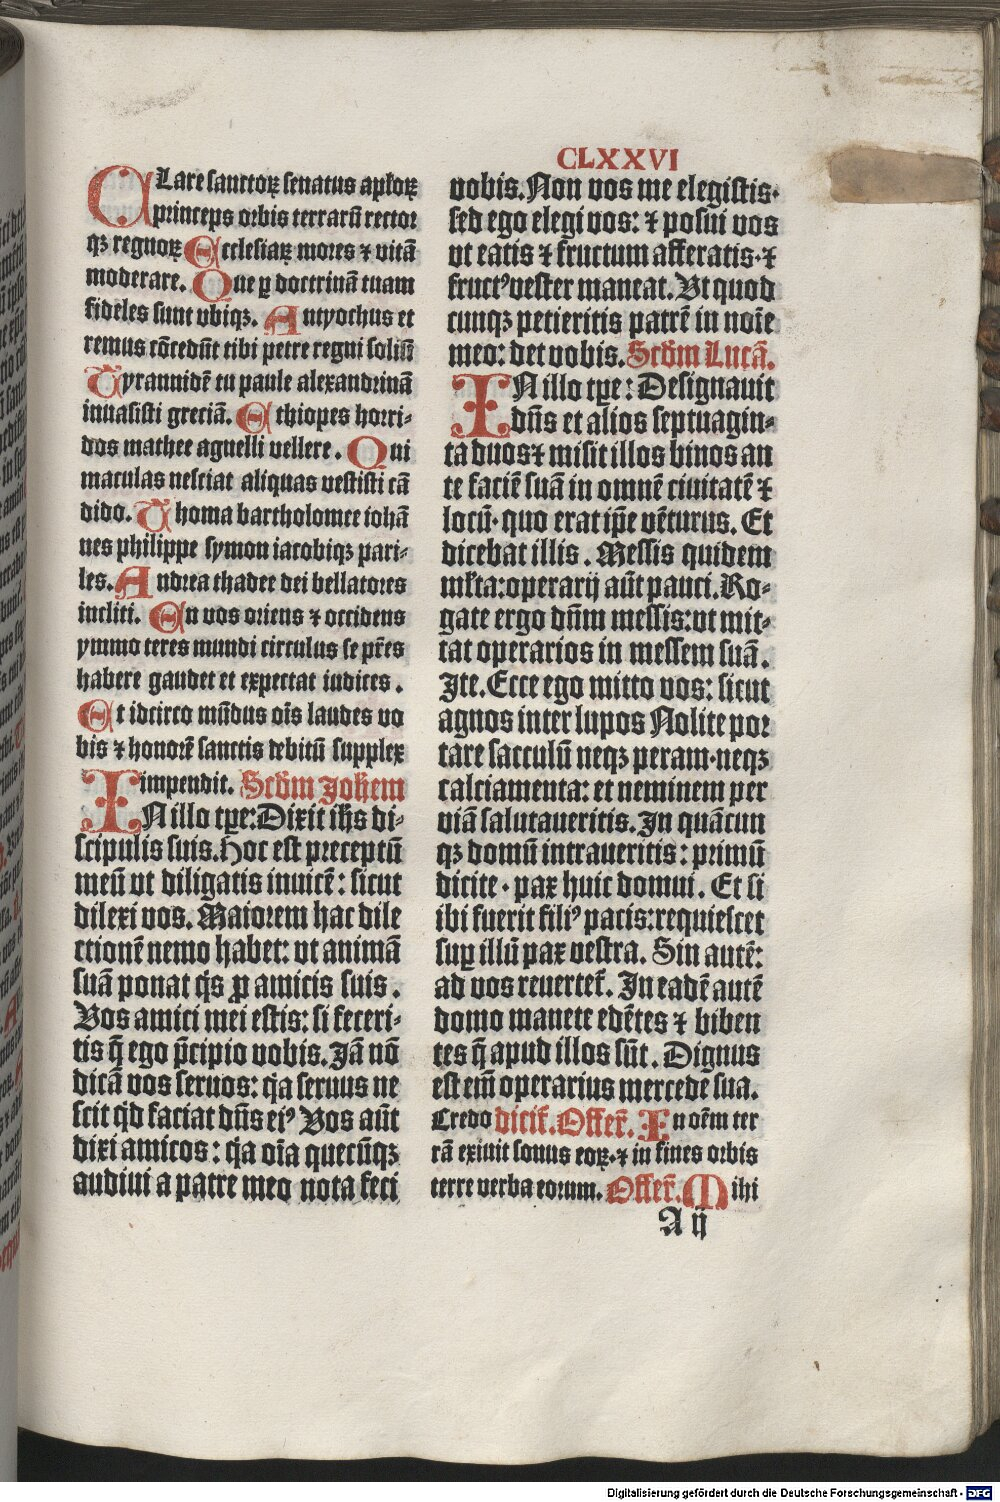 CLXXVI
CLare sanctoꝝ senatus apl̓oꝝ
princeps orbis terrarū rector
qꝫ regnoꝝ Ecclesiaꝝ mores ⁊ vitā
moderare. Que ꝑ doctrinā tuam
fideles sunt vbiqꝫ. Antyochus et
remus cōcedūt tibi petre regni soliū
Tyrannidē tu paule alexandrinā
inuasisti greciā. Ethiopes horri-
dos mathee agnelli vellere. Qui
maculas nesciat aliquas vestisti cā
dido. Thoma bartholomee iohā
nes philippe symon iacobiqꝫ pari-
les. Andrea thadee dei bellatores
incliti. En vos oriens ⁊ occidens
ymmo teres mundi circulus se pr̄es
habere gaudet et expectat iudices.
Et idcirco mūdus oīs laudes vo
bis ⁊ honorē sanctis debitū supplex
impendit. Scd̄m Joh̄em
IN illo tꝑe: Dixit ih̄s di-
scipulis suis. Hoc est preceptū
meū vt diligatis inuicē: sicut
dilexi vos. Maiorem hac dile
ctionē nemo habet: vt animā
suā ponat q̇s ꝓ amicis suis.
Vos amici mei estis: si feceri-
tis q̄ ego p̄cipio vobis. Jā nō
dicā vos seruos: q̇a seruus ne
scit qd̓ faciat dn̄s eiꝰ Vos aūt
dixi amicos: q̇a oīa quecūqꝫ
audiui a patre meo nota feci
vobis. Non vos me elegistis.
sed ego elegi vos: ⁊ posui vos
vt eatis ⁊ fructum afferatis. ⁊
fructꝰ vester maneat. Vt quod
cunqꝫ petieritis patrē in noīe
meo: det vobis. Scd̄m Lucā.
IN illo tꝑe: Designauit
dn̄s et alios septuagin-
ta duos ⁊ misit illos binos an
te faciē suā in omnē ciuitatē ⁊
locū. quo erat ip̄e vēturus. Et
dicebat illis. Messis quidem
ml̓ta: operarij aūt pauci. Ro-
gate ergo dn̄m messis: vt mit-
tat operarios in messem suā.
Jte. Ecce ego mitto vos: sicut
agnos inter lupos Nolite por
tare sacculū neqꝫ peram. neqꝫ
calciamenta: et neminem per
viā salutaueritis. Jn quācun
qꝫ domū intraueritis: primū
dicite. pax huic domui. Et si
ibi fuerit filiꝰ pacis: requiescet
suꝑ illū pax vestra. Sin autē:
ad vos reuertet̓. Jn eadē autē
domo manete edētes ⁊ biben
tes q̄ apud illos sūt. Dignus
est em̄ operarius mercede sua.
Credo dicit̓. Offer̄. In oēm ter
rā exiuit sonus eoꝝ. ⁊ in fines orbis
terre verba eorum. Offer̄. Mihi
A ij
Digitalisierung gefördert durch die Deutsche Forschungsgemeinschaft - DFG